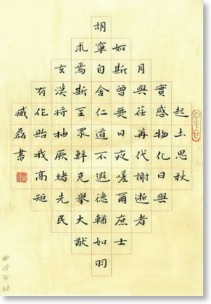 吉士思秋
實感物化日與
月與荏苒代謝逝者
如斯曾無日夜嗟爾庶士
胡寧自舍仁道不遐德輶如羽
求焉斯至眾鮮克舉大猷
玄漠將抽厥緒先民
有作貽我高矩
臧磊書